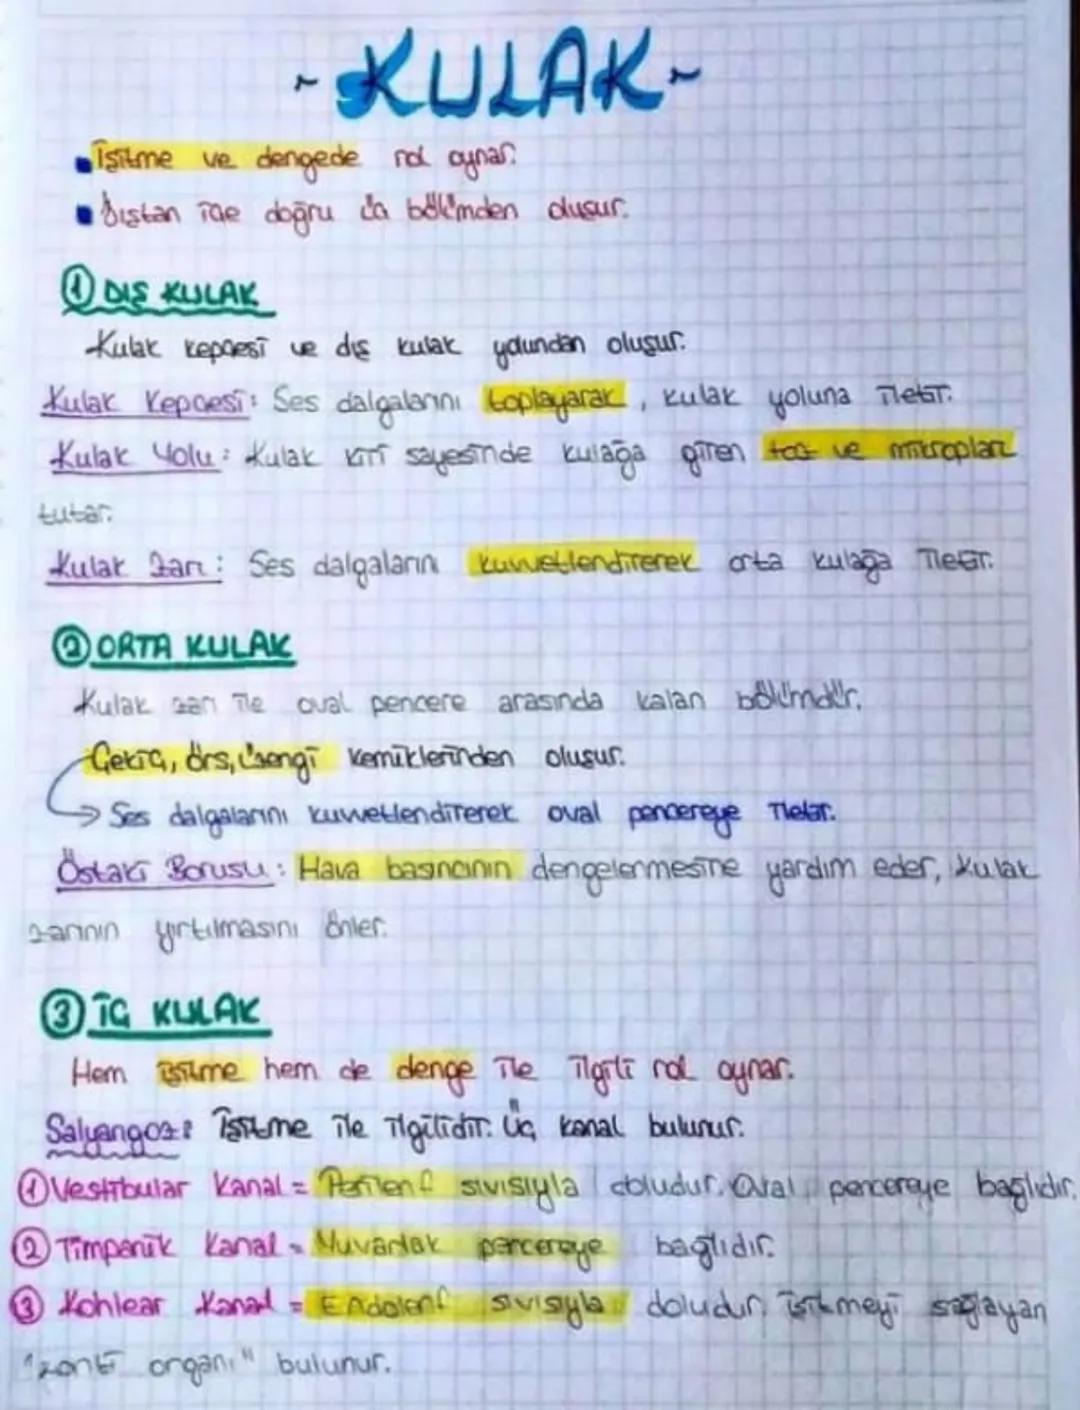 ~KULAK~
İşitme ve dengede rol oynar.
Dıştan içe doğru üç bölümden oluşur.
① DIŞ KULAK
Kulak kepçesi ve dış kulak yolundan oluşur.
Kulak Kepçesi: Ses dalgalarını toplayarak, kulak yoluna iletir.
Kulak Yolu: Kulak kiri sayesinde kulağa giren toz ve mikropları
tutar.
Kulak Zarı: Ses dalgalarını kuvvetlendirerek orta kulağa iletir.
② ORTA KULAK
Kulak zarı ile oval pencere arasında kalan bölümdür.
Çekiç, örs, üzengi kemiklerinden oluşur.
→ Ses dalgalarını kuvvetlendirerek oval pencereye iletir.
Östaki Borusu: Hava basıncının dengelenmesine yardım eder, kulak
zarının yırtılmasını önler.
③ İÇ KULAK
Hem işitme hem de denge ile ilgili rol oynar.
Salyangoz: İşitme ile ilgilidir. Üç kanal bulunur.
① Vestibular Kanal = Perilenf sıvısıyla doludur. Oval pencereye bağlıdır.
② Timpanik Kanal = Yuvarlak pencereye bağlıdır.
③ Kohlear Kanal = Endolenf sıvısıyla doludur, işitmeyi sağlayan
organı" bulunur.